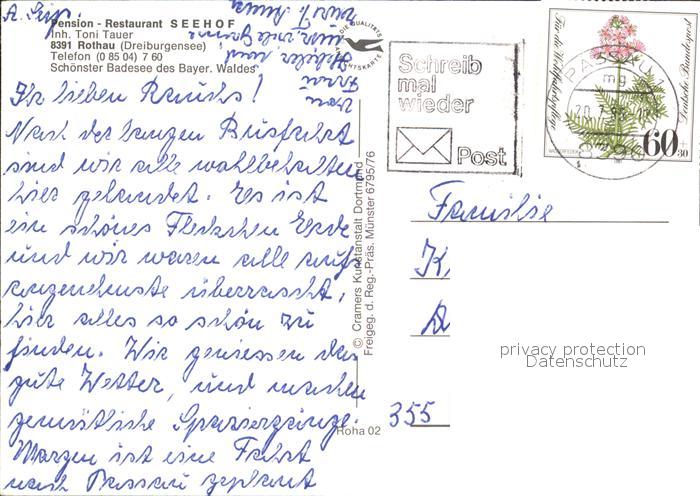 Pension - Restaurant SEEHOF
Inh. Toni Tauer
8391 Rothau (Dreiburgensee)
Telefon (0 85 04) 7 60
Schönster Badesee des Bayer. Waldes
Ihr lieben Rauchs!
Nach der langen Busfahrt
sind wir alle wohlbehalten
hier gelandet. Es ist
ein schönes Fleckchen Erde
und wir waren alle aufs
angenehmste überrascht,
hier alles so schön zu
finden. Wir geniessen das
gute Wetter, und machen
gemütliche Spaziergänge.
Morgen ist eine Fahrt
nach Passau geplant
© Cramers Kunstanstalt Dortmund
Freigeg. d. Reg.-Präs. Münster 6795/76
Roha 02
Schreib
mal
wieder
Post
PASSAU 1
mg
8390
Für die Wohlfahrtspflege
Deutsche Bundespost
60
+30
Familie
K.
A
355
privacy protection
Datenschutz